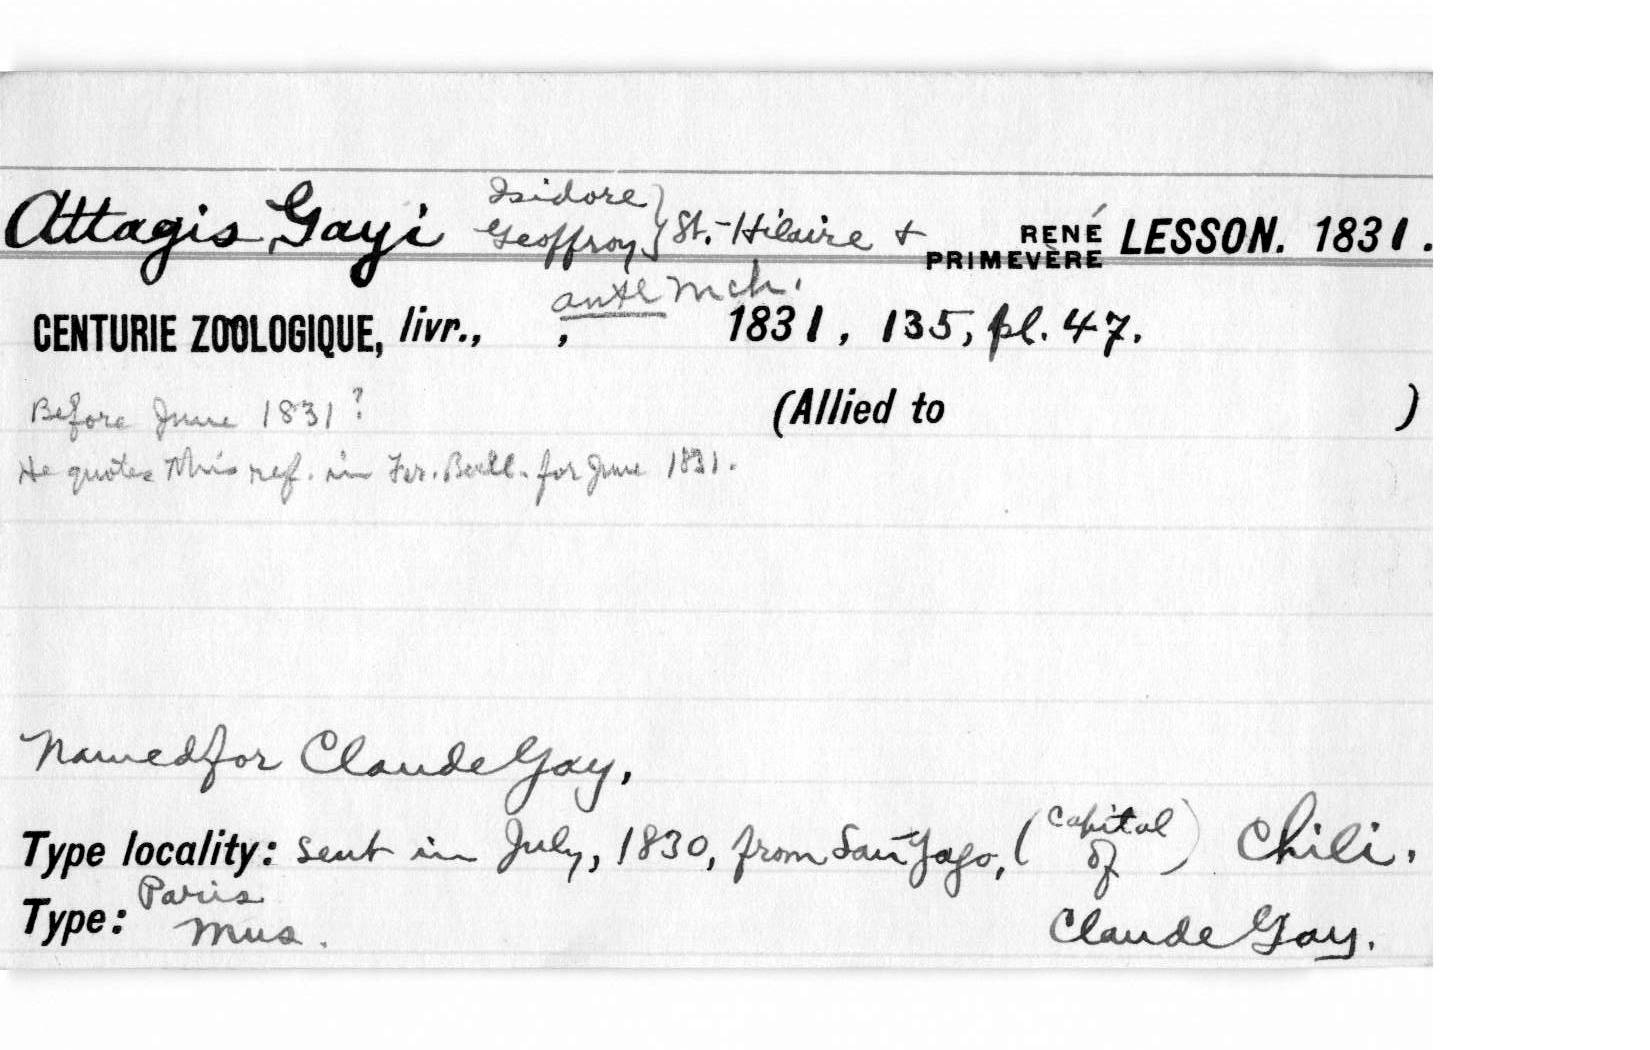 Attagis Gayi Isidore Geoffroy } St.-Hilaire + RENÉ PRIMEVÈRE LESSON. 1831.
ante Mch.
CENTURIE ZOOLOGIQUE, livr., , 1831, 135, pl. 47.
Before June 1831? (Allied to )
He quotes this ref. in Fer. Bull. for June 1831.
Named for Claude Gay,
Type locality: sent in July, 1830, from San Yago, (capital of) Chili.
Type: Paris Mus. Claude Gay.